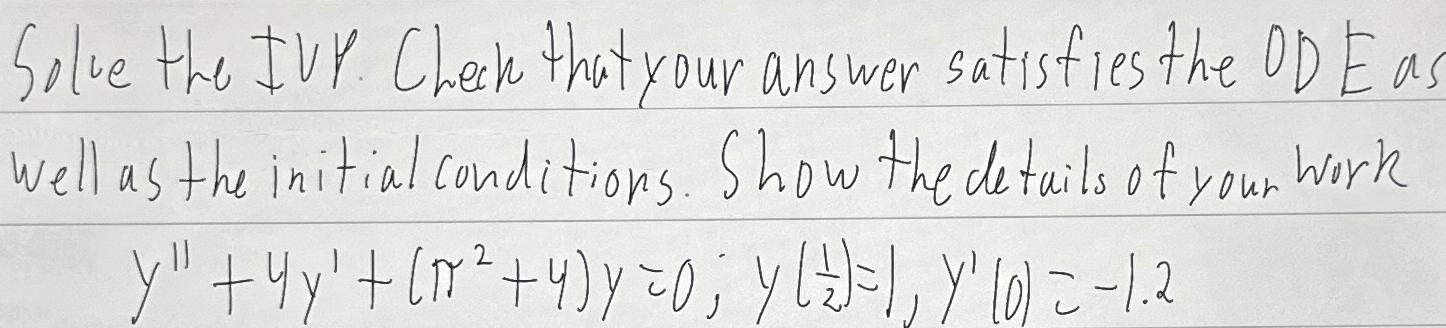 Solve the IVP. Check that your answer satisfies the ODE as
well as the initial conditions. Show the details of your work
y'' + 4y' + (π² + 4)y = 0; y(1/2) = 1, y'(0) = -1.2